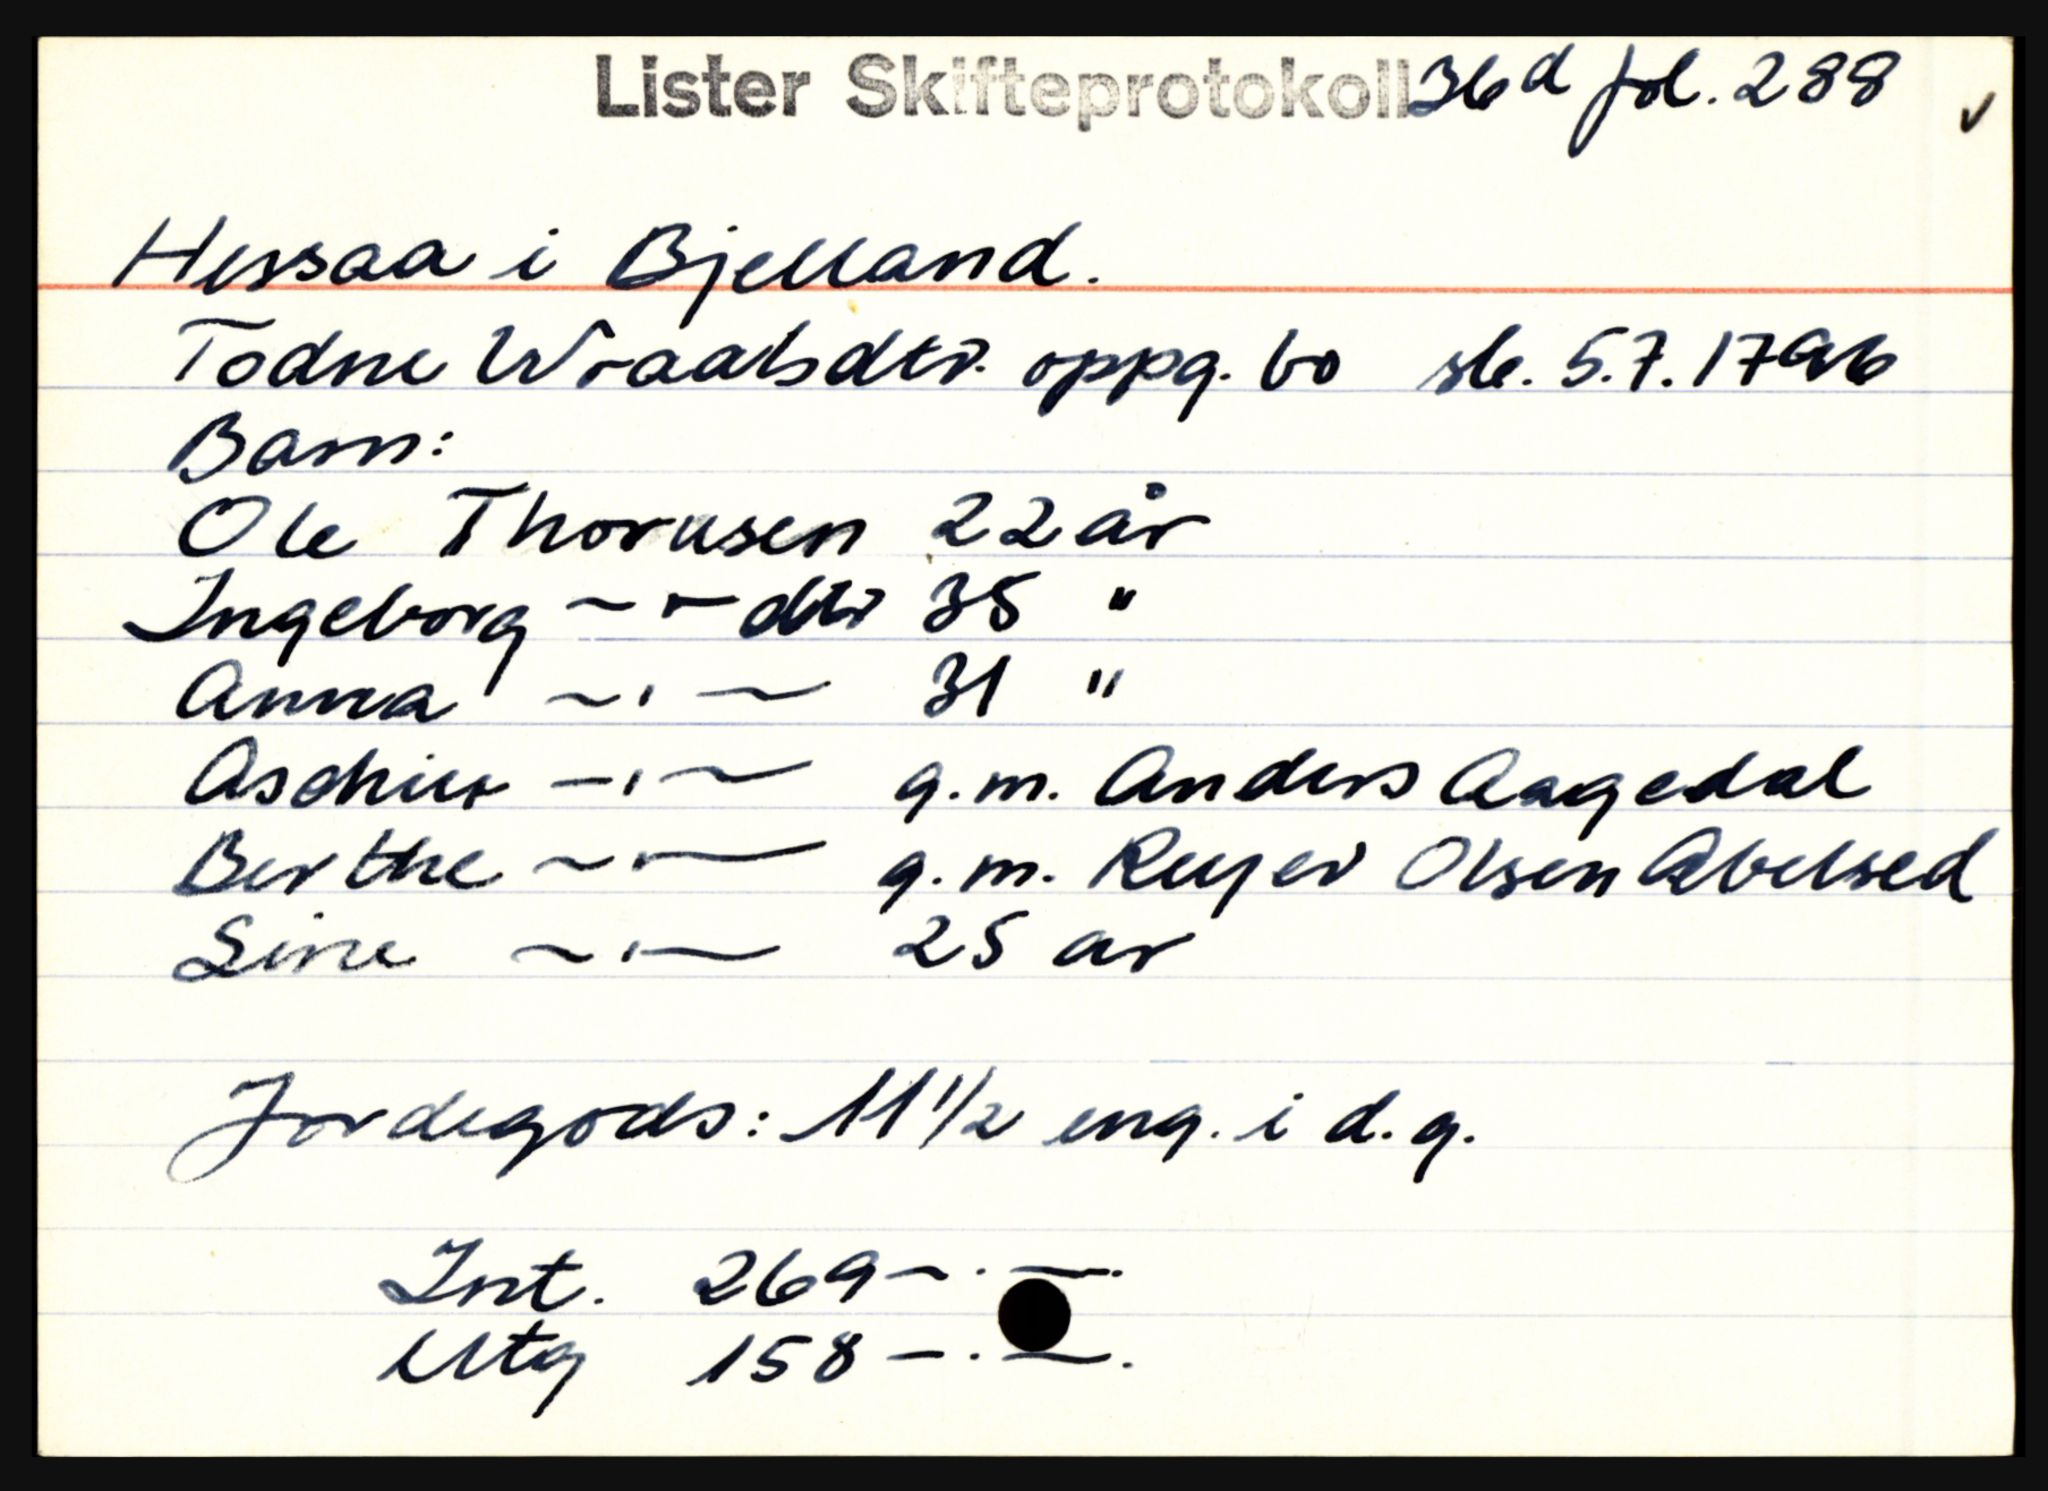 Lister Skifteprotokoll 36d fol. 288 ✓
Hessaa i Bjelland.
Todne Wraalsdtr. oppg. bo sl. 5.7.1796
Barn:
Ole Thorusen 22 år
Ingeborg ~ · — dtr 35 "
Anna ~ · ~ 31 "
— · ~ g.m. Anders Aagedal
Berthe ~ · — g.m. Reyer Olsen Abelsed
Sine ~ · — 25 ar
Jordegods: 11 1/2 eng. i d.g.
Int. 269 — · — ·
Utg 158 — · — ·